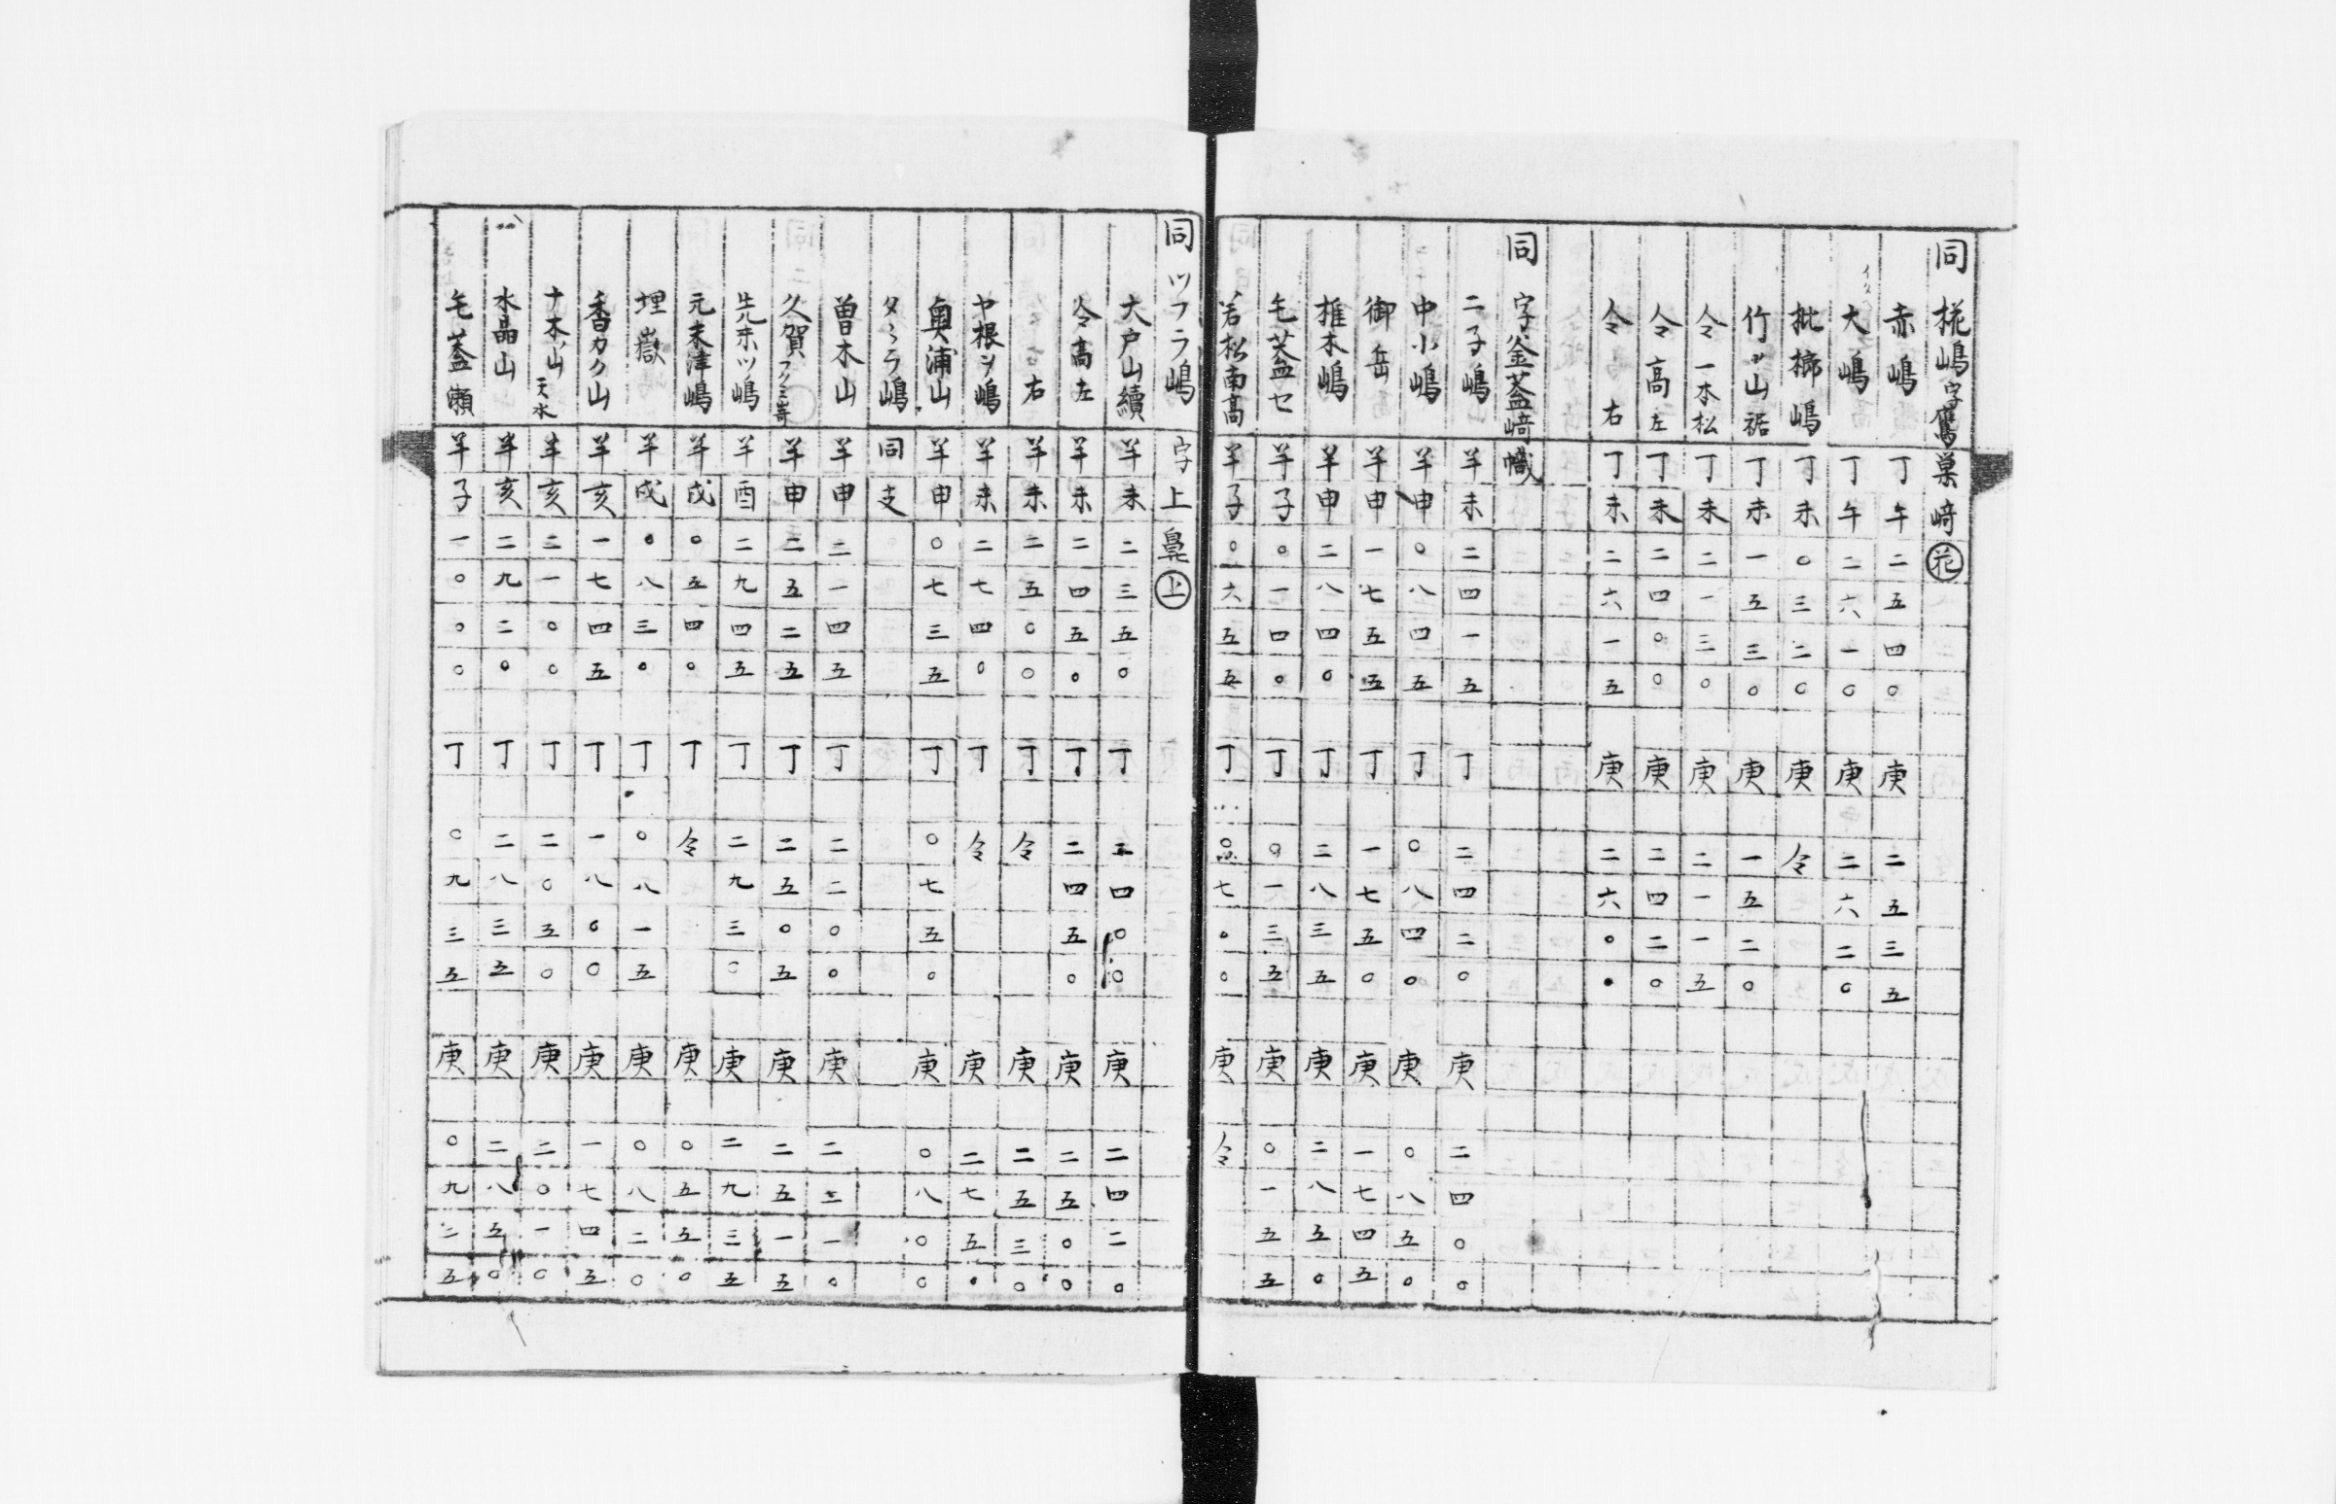 同 桜嶋字鷹巣﨑 花
赤嶋 丁午二五四〇 庚二五三五
大嶋 丁午二六一〇 庚二六二〇
批榔嶋 丁未〇三二〇 庚仝
竹ガ山裾 丁未一五三〇 庚一五二〇
仝一本松 丁未二一三〇 庚二一一五
仝高左 丁未二四〇〇 庚二四二〇
仝右 丁未二六一五 庚二六〇〇
同 字釜蓋﨑幟
二子嶋 羊未二四一五 丁二四二〇 庚二四〇〇
中小嶋 羊申〇八四五 丁〇八四〇 庚〇八五〇
御岳 羊申一七五五 丁一七五〇 庚一七四五
椎木嶋 羊申二八四〇 丁二八三五 庚二八五〇
毛蓋セ 羊子〇一四〇 丁〇一三五 庚〇一五五
若松南高 羊子〇六五五 丁〇七〇〇 庚仝
同 ツフラ嶋 字上鼻 上
大戸山續 羊未二三五〇 丁二四〇〇 庚二四二〇
仝高左 羊未二四五〇 丁二四五〇 庚二五〇〇
右 羊未二五〇〇 丁仝 庚二五三〇
ヤ根ヲ嶋 羊未二七四〇 丁仝 庚二七五〇
奥浦山 羊申〇七三五 丁〇七五〇 庚〇八〇〇
タヽラ嶋 同支
曽木山 羊申二一四五 丁二二〇〇 庚二二一〇
久賀フクミ﨑 羊申二五二五 丁二五〇五 庚二五一五
先末ツ嶋 羊酉二九四五 丁二九三〇 庚二九三五
元末津嶋 羊戌〇五四〇 丁仝 庚〇五五〇
埋嶽 羊戌〇八三〇 丁〇八一五 庚〇八二〇
香カク山 羊亥一七四五 丁一八〇〇 庚一七四五
ナ木山天水 羊亥二一〇〇 丁二〇五〇 庚二〇一〇
水晶山 羊亥二九二〇 丁二八三五 庚二八五〇
毛蓋瀬 羊子一〇〇〇 丁〇九三五 庚〇九二五